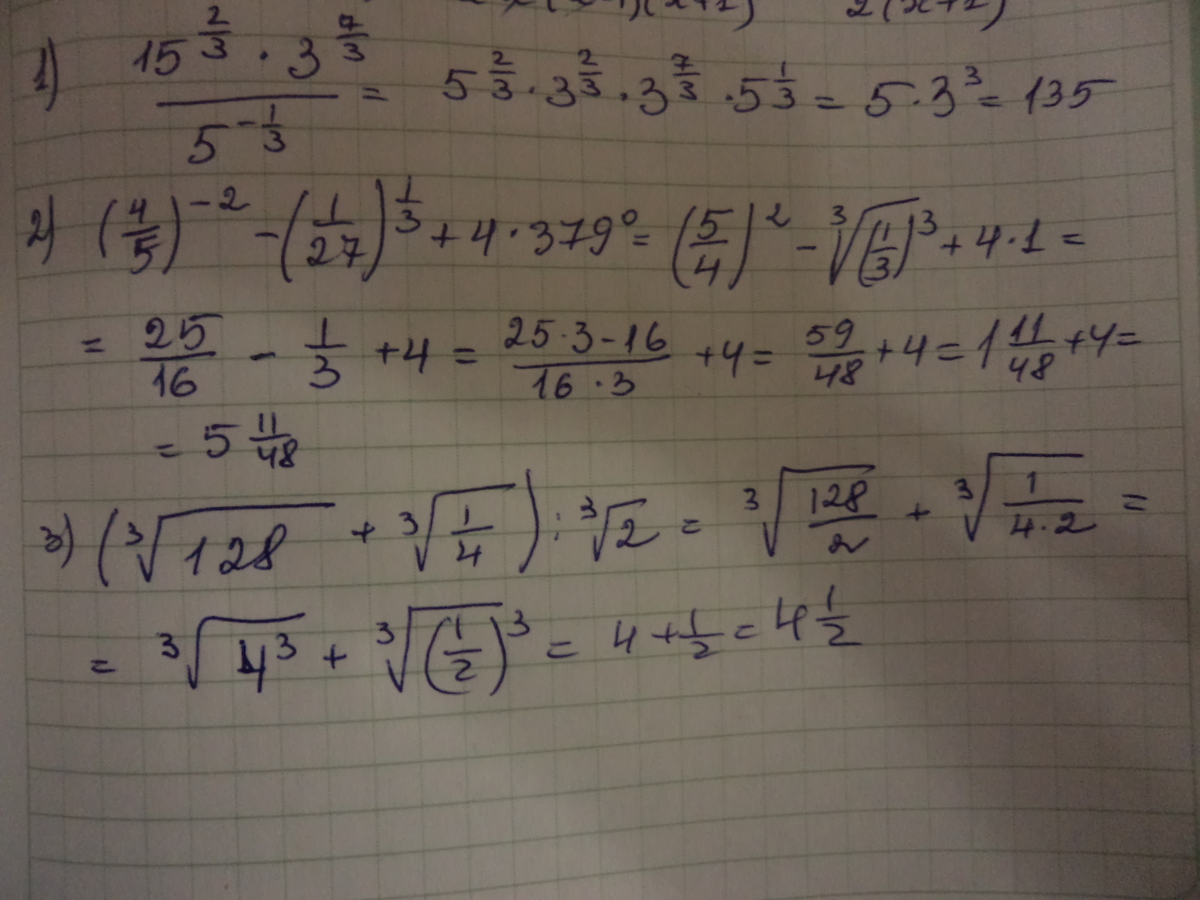 2(x+1)
1) \frac{15^{\frac{2}{3}} \cdot 3^{\frac{7}{3}}}{5^{-\frac{1}{3}}} = 5^{\frac{2}{3}} \cdot 3^{\frac{2}{3}} \cdot 3^{\frac{7}{3}} \cdot 5^{\frac{1}{3}} = 5 \cdot 3^3 = 135
2) (\frac{4}{5})^{-2} - (\frac{1}{27})^{\frac{1}{3}} + 4 \cdot 379^0 = (\frac{5}{4})^2 - \sqrt[3]{(\frac{1}{3})^3} + 4 \cdot 1 =
= \frac{25}{16} - \frac{1}{3} + 4 = \frac{25 \cdot 3 - 16}{16 \cdot 3} + 4 = \frac{59}{48} + 4 = 1\frac{11}{48} + 4 =
= 5\frac{11}{48}
3) (\sqrt[3]{128} + \sqrt[3]{\frac{1}{4}}) : \sqrt[3]{2} = \sqrt[3]{\frac{128}{2}} + \sqrt[3]{\frac{1}{4 \cdot 2}} =
= \sqrt[3]{4^3} + \sqrt[3]{(\frac{1}{2})^3} = 4 + \frac{1}{2} = 4\frac{1}{2}